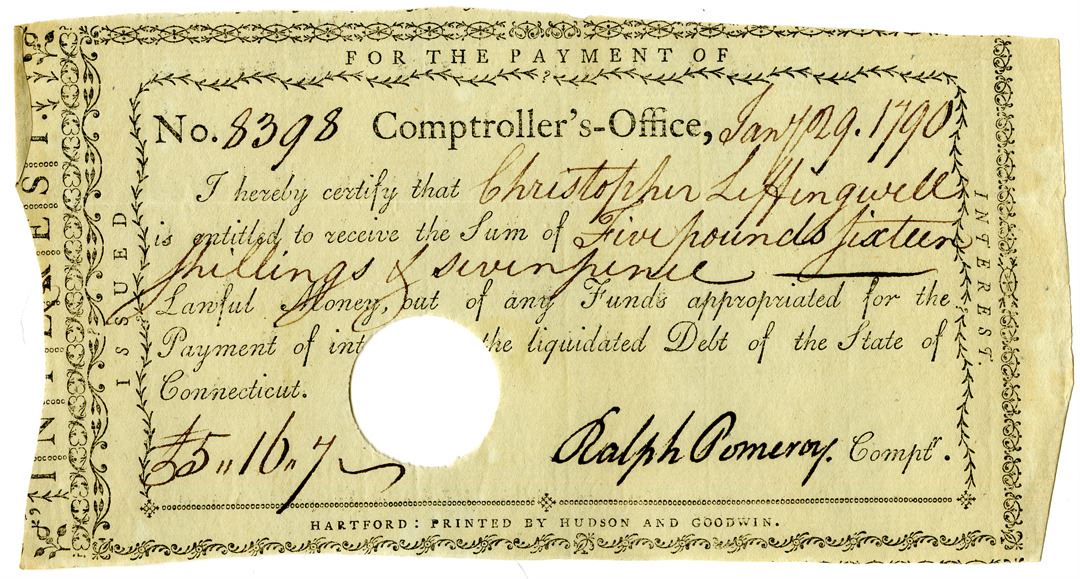 FOR THE PAYMENT OF
No. 8398 Comptroller's-Office, Jany 29. 1790
I hereby certify that Christopher Leffingwell
is entitled to receive the Sum of Five pounds sixteen
shillings & seven pence
Lawful Money, out of any Funds appropriated for the
Payment of int the liquidated Debt of the State of
Connecticut.
£5 " 16 " 7
Ralph Pomeroy. Comptr.
HARTFORD: PRINTED BY HUDSON AND GOODWIN.
ISSUED
INTEREST.
INTEREST.